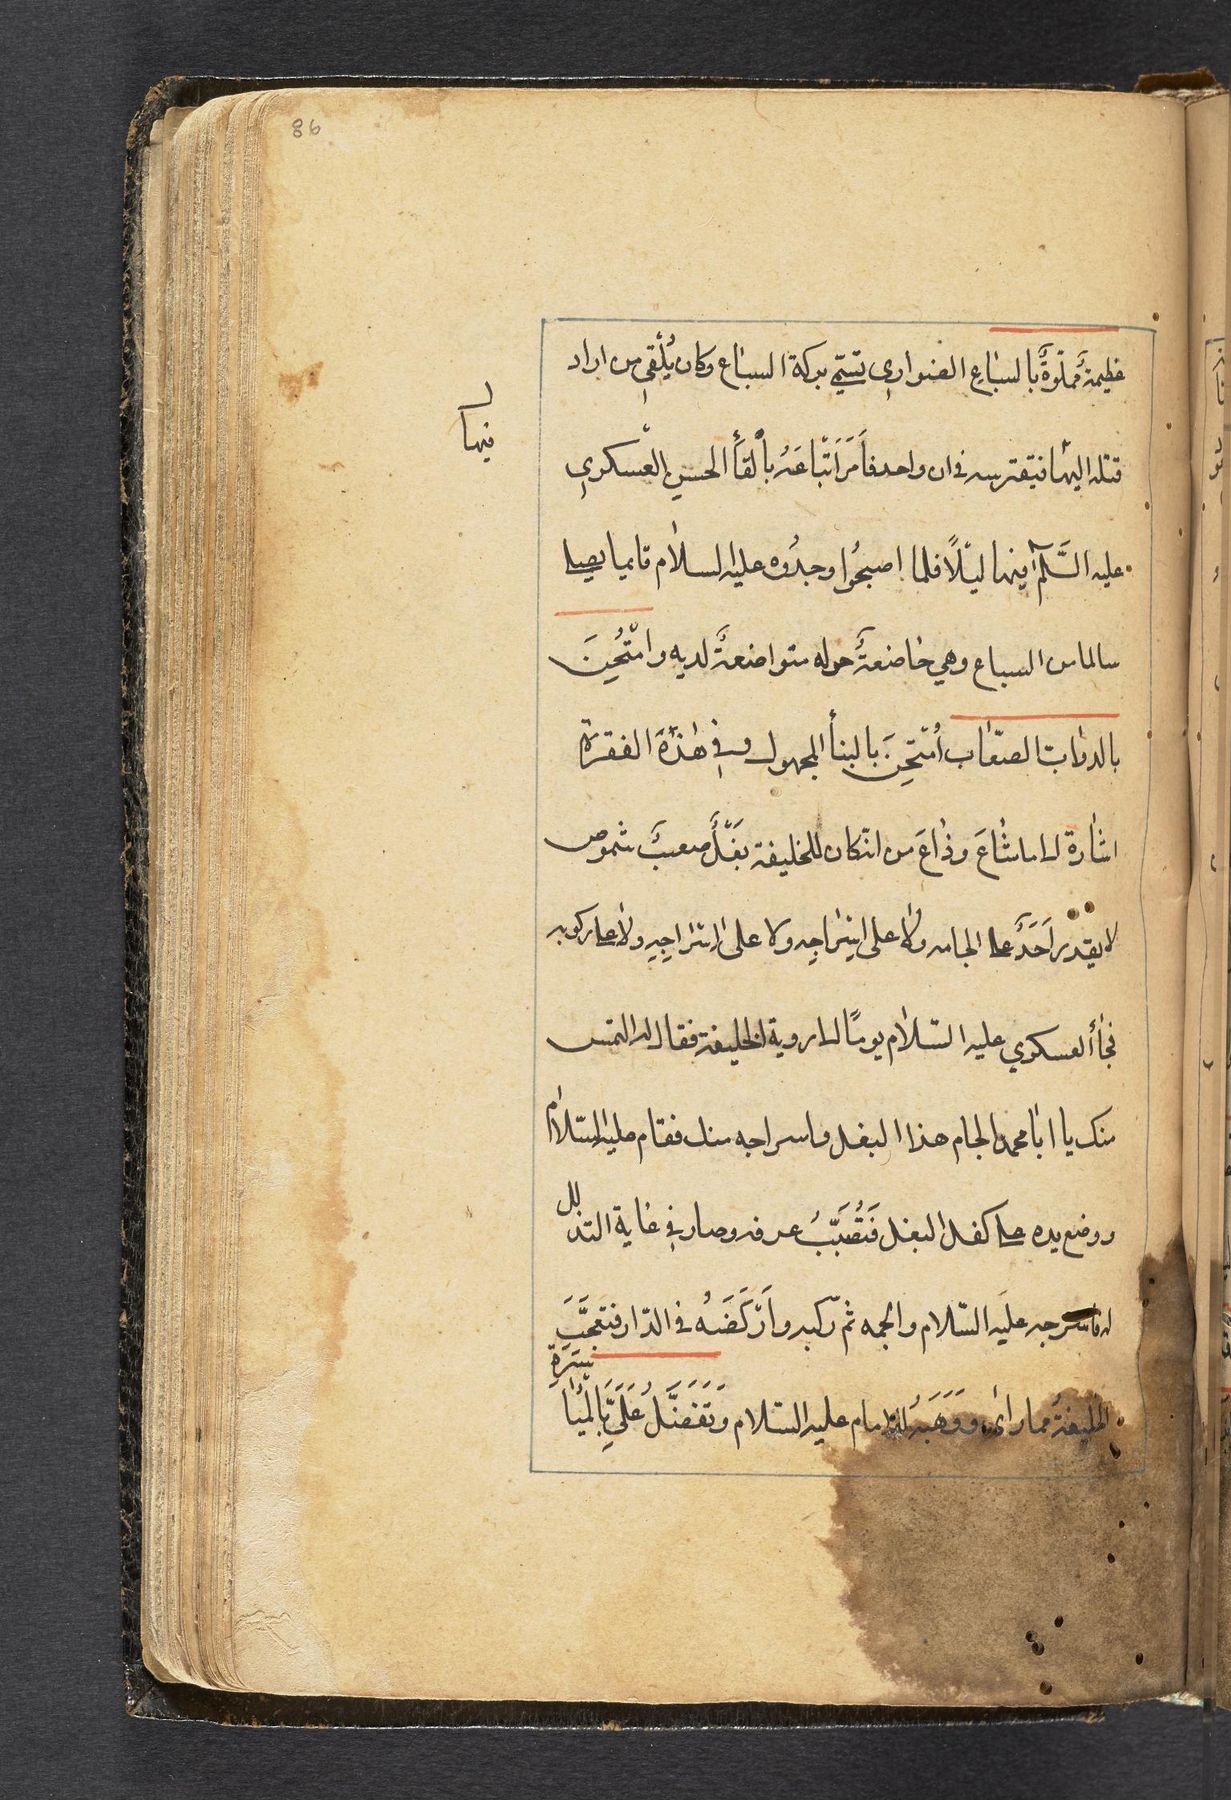 86
عظيمةٌ مملوّةٌ بالسباع الضواري تسمّى بركة السباع وكان يُلْقي من اراد
فيها
قتله اليها فتفترسه في ان واحد فاَمَرَ اَتْباعَهُ بِاْلقاءَ الحسن العْسكري
عليه السَّلَمُ فيها ليْلاً فلما اصبحُوا وجدُوه عليه السلام قايما يصلي
سالما من السباع وهي خاضعةٌ حوله متواضعةٌ لديه وامْتُحِنَ
بالدوابّ الصعاب اُمْتُحِنَ بالبنأ المجهول وفي هٰذِهَ الفقرة
اشارة الى ما شاعَ وذاعَ من انّ كان للخليفة بَغْلٌ صعبٌ شموص
لا يقدر اَحَدٌ على الجامه ولا على اِسْراجِه ولا على اِسْراجِهِ ولا على ركوبه
فجأَ العسكري عليه السّلام يومًا الى روية الخليفة فقال له التمس
منك يا ابا محمد الجام هذا البغل واسراجه منك فقام عليه السّلام
ووضع يده على كفل البغل فَتَصَبَّبَ عرقه وصار في غاية التذلل
له فاسرجه عليَه السّلام والجمه ثم ركبه واَرْكَضَهُ في الدّار فتعجَّبَ
الخليفة مما راى ووَهَبَهُ للامام عليه السّلام وَتَفَضَّلْ عَلَيَّ بِالْمُيا
سَرَةِ